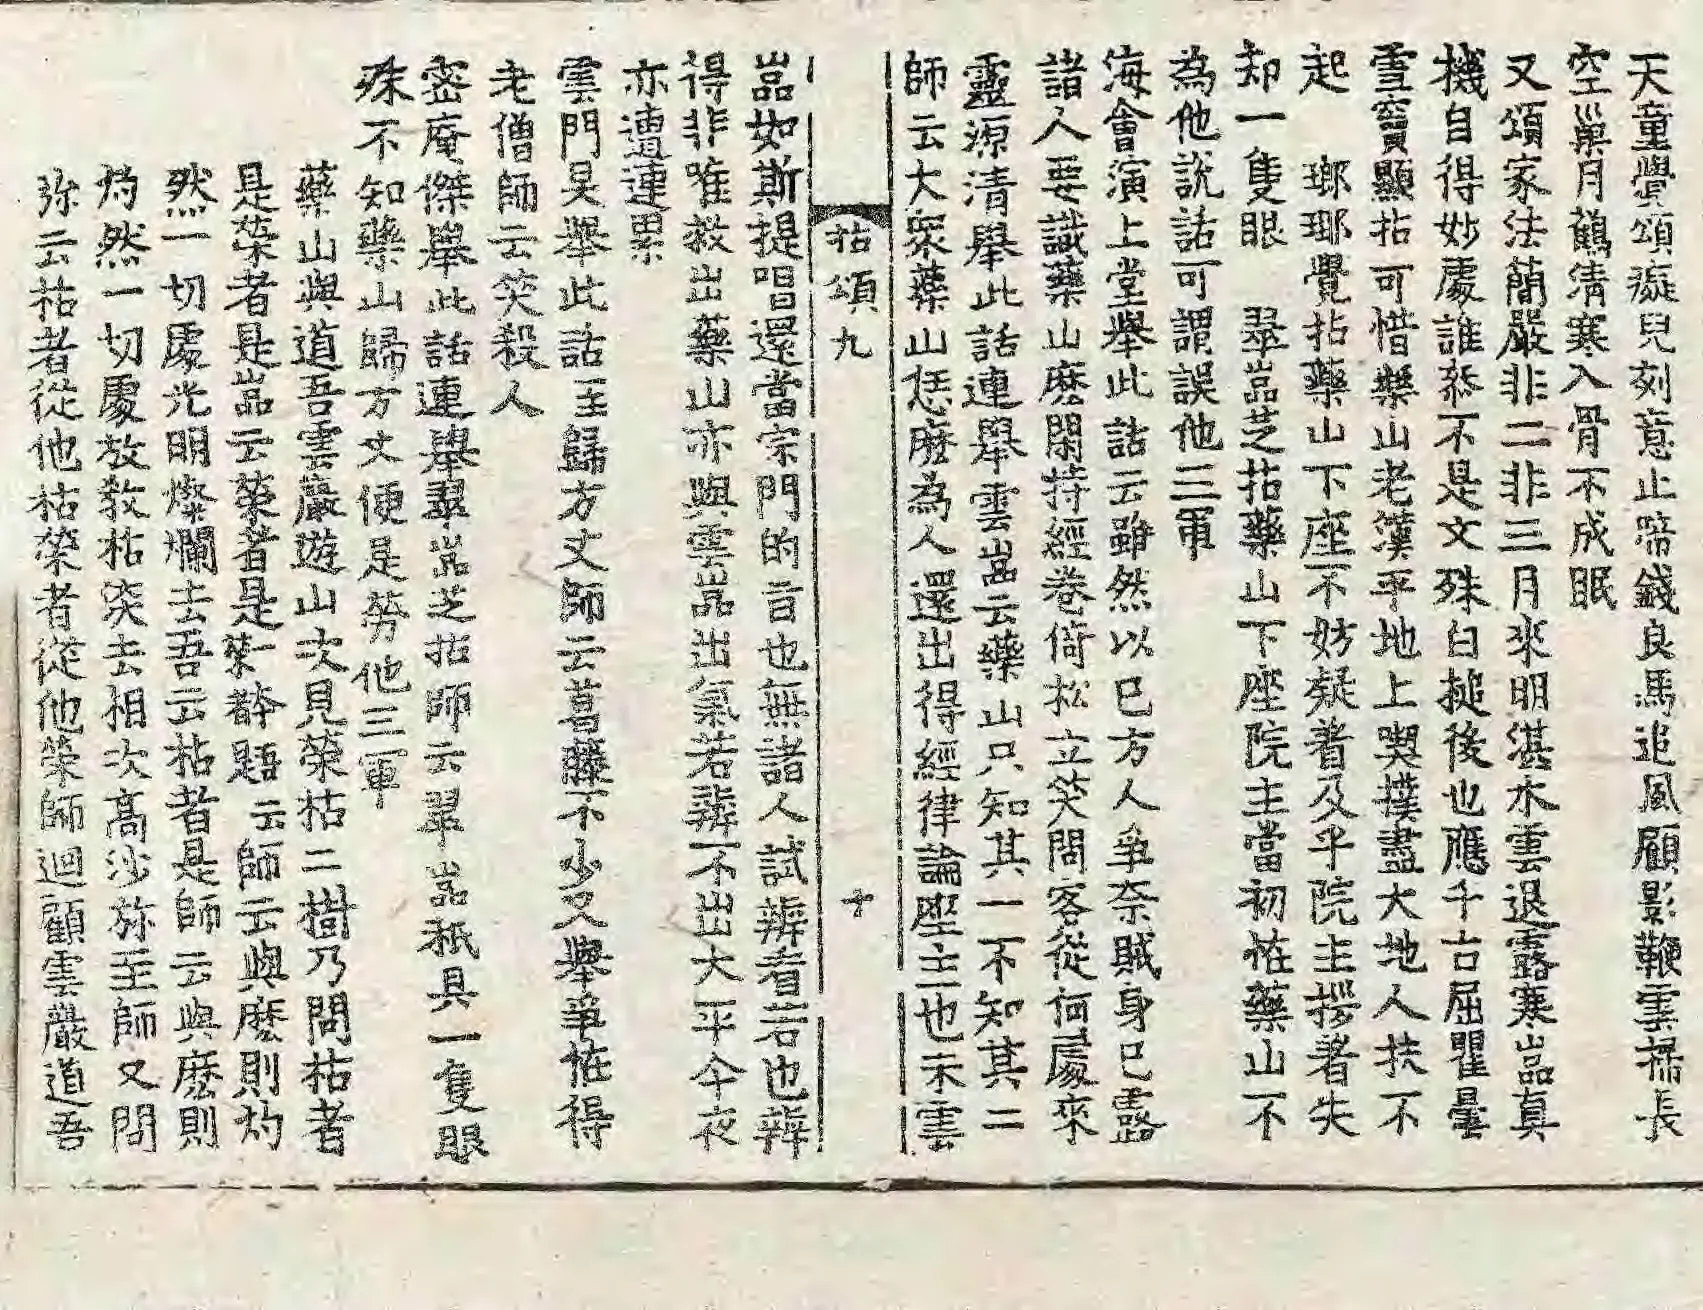 天童覺頌癡兒刻意止啼錢良馬追風顧影鞭雲掃長
空巢月鶴清寒入骨不成眠
又頌家法蕳嚴非二非三月來明湛水雲退露寒嵓真
機自得妙處誰叅不是文殊白搥後也應千古屈瞿曇
雪竇顯拈可惜藥山老漢平地上喫撲盡大地人扶不
起　瑯瑘覺拈藥山下座不妨疑著及乎院主拶著失
却一隻眼　翠嵓芝拈藥山下座院主當初恠藥山不
為他說話可謂誤他三軍
海會演上堂舉此話云雖然以己方人爭奈賊身已露
諸人要識藥山麽閑持經卷倚松立笑問客從何處來
靈源清舉此話連舉雲嵓云藥山只知其一不知其二
師云大衆藥山恁麽為人還出得經律論座主也未雲
拈頌九　十
嵓如斯提唱還當宗門的旨也無諸人試辨者若也辨
得非唯救出藥山亦與雲嵓出氣若辨不出大平今夜
亦遭連累
雲門杲舉此話至歸方丈師云葛藤不少又舉爭恠得
老僧師云笑殺人
密庵傑舉此話連舉翠嵓芝拈師云翠嵓秖具一隻眼
殊不知藥山歸方丈便是勞他三軍
藥山與道吾雲巖遊山次見榮枯二樹乃問枯者
是榮者是嵓云榮者是師云與麽則灼
然一切處光明燦爛去吾云枯者是師云與麽則
灼然一切處放教枯淡去相次高沙弥至師又問
弥云枯者從他枯榮者從他榮師迴顧雲巖道吾